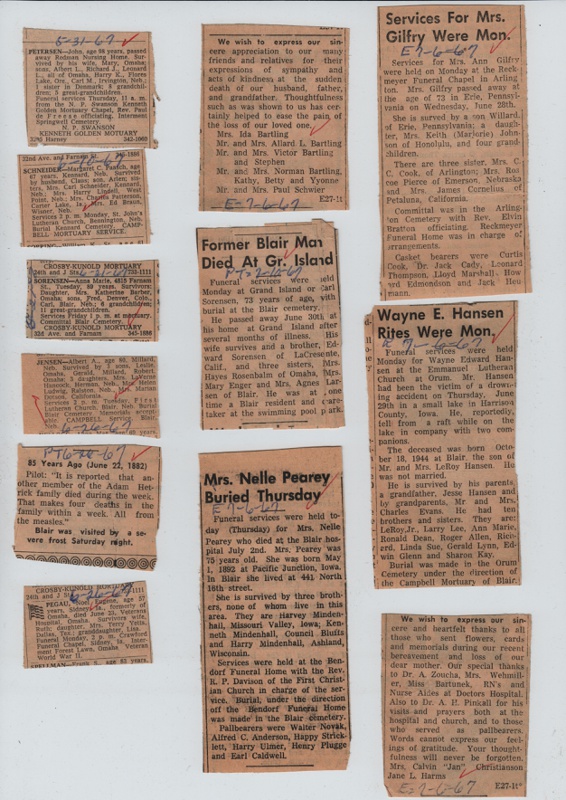 5-31-67
PETERSEN—John, age 98 years, passed
away Redmon Nursing Home. Sur-
vived by his wife, Mary, Omaha;
sons, Albert L., Richard J., Leonard
L., all of Omaha, Harry K., Flora
Lake, Ore., Carl M., Irvington, Neb.;
1 sister in Denmark; 8 grandchil-
dren; 3 great-grandchildren.
Funeral services Thursday, 11 a.m.
from the N. P. Swanson Kenneth
Golden Mortuary Chapel, Rev. Paul
de Freese officiating. Interment
Springwell Cemetery.
N. P. SWANSON
KENNETH GOLDEN MOTUARY
3240 Harney 342-1060
32nd Ave. and Farnam St.
SCHNEIDER—Margaret C. Paasch, age
67 years, Kennard, Neb. Survived
by husband, Claus; son, Arlen; sis-
ters, Mrs. Carl Schneider, Kennard,
Neb.; Mrs. Harry Lindell, West
Point, Neb.; Mrs. Charles Patterson,
Carter Lake, Ia.; Mrs. Ed Braun,
Winner, Neb.
Services 2 p.m. Monday, St. John's
Lutheran Church, Bennington, Neb.
Burial Kennard Cemetery. CAMP-
BELL MORTUARY SERVICE.
CROSBY-KUNOLD MORTUARY
24th and J Sts. 6-21-67 733-1111
SORENSEN—Anna Marie, 4318 Farnam
St., Tuesday, 89 years. Survivors:
Daughter, Mrs. Katherine Berber,
Omaha; sons, Fred, Denver, Colo.,
Carl, Blair, Neb.; 6 grandchildren;
11 great-grandchildren.
Services Friday 1 p.m. at mortuary.
Committal Blair Cemetery.
CROSBY-KUNOLD MORTUARY
32d Ave. and Farnam 345-1886
JENSEN—Albert A., age 80, Millard,
Neb. Survived by 3 sons, Leslie,
Omaha, Gerald, Millard, Merle,
Omaha; 3 daughters, Mrs. LaVaine
Hancock, Herman, Neb., Mrs. Maxine
Ludwig, Ralston, Neb., Mrs. Marian
Dotson, California.
Services 2 p.m. Tuesday, First
Lutheran Church, Blair, Neb. Burial
Blair Cemetery. Memorials accepted
. CAMPBELL Serving Blair.
6-26-67
PT 6-20-67
85 Years Ago (June 22, 1882)
Pilot: "It is reported that an-
other member of the Adam Het-
rick family died during the week.
That makes four deaths in the
family within a week. All from
the measles."
Blair was visited by a se-
vere frost Saturday night.
CROSBY-KUNOLD MORTUARY
24th and J Sts. 6-26-67 733-1111
PEGAU, age 52
years, Sidney, Ia., formerly of
Omaha, died June 23. Veterans
Hospital, Omaha. Survivors: wife,
Ruth; daughter, Mrs. Terry Yentis,
Dallas, Tex.; granddaughter, Lisa.
Funeral Monday, 2 p.m., Crawford
Funeral Chapel, Sidney, Ia. Inter-
ment Forest Lawn, Omaha. Veteran
World War II.
We wish to express our sin-
cere appreciation to our many
friends and relatives for their
expressions of sympathy and
acts of kindness at the sudden
death of our husband, father,
and grandfather. Thoughtfulness
such as was shown to us has cer-
tainly helped to ease the pain of
the loss of our loved one.
Mrs. Ida Bartling
Mr. and Mrs. Allard L. Bartling
Mr. and Mrs. Victor Bartling
and Stephen
Mr. and Mrs. Norman Bartling,
Kathy, Betty and Yvonne
Mr. and Mrs. Paul Schwier
E-7-6-67 E27-1t
Former Blair Man
Died At Gr. Island
Funeral services were held
Monday at Grand Island for Carl
Sorensen, 73 years of age, with
burial at the Blair cemetery.
He passed away June 30th at
his home at Grand Island after
several months of illness. His
wife survives and a brother, Ed-
ward Sorensen of LaCresente,
Calif., and three sisters, Mrs.
Hayes Rosenbalm of Omaha, Mrs.
Mary Enger and Mrs. Agnes Lar-
sen of Blair. He was at one
time a Blair resident and care-
taker at the swimming pool park.
Mrs. Nelle Pearey
Buried Thursday
E 7-6-67
Funeral services were held to-
day (Thursday) for Mrs. Nelle
Pearey who died at the Blair hos-
pital July 2nd. Mrs. Pearey was
75 years old. She was born May
1, 1892 at Pacific Junction, Iowa.
In Blair she lived at 441 North
16th street.
She is survived by three broth-
ers, none of whom live in this
area. They are Harvey Minden-
hall, Missouri Valley, Iowa; Ken-
neth Mindenhall, Council Bluffs
and Harry Mindenhall, Ashland,
Wisconsin.
Services were held at the Ben-
dorf Funeral Home with the Rev.
R. P. Davison of the First Chris-
tian Church in charge of the ser-
vice. Burial, under the direction
off the Bendorf Funeral Home
was made in the Blair cemetery.
Pallbearers were Walter Novak,
Alfred C. Anderson, Happy Strick-
lett, Harry Ulmer, Henry Plugge
and Earl Caldwell.
Services For Mrs.
Gilfry Were Mon.
E 7-6-67
Services for Mrs. Ann Gilfry
were held on Monday at the Reck-
meyer Funeral Chapel in Arling-
ton. Mrs. Gilfry passed away at
the age of 73 in Erie, Pennsyl-
vania on Wednesday, June 28th.
She is survived by a son Willard,
of Erie, Pennsylvania; a daugh-
ter, Mrs. Keith (Marjorie) John-
son of Honolulu, and four grand-
children.
There are three sister, Mrs. C.
C. Cook, of Arlington; Mrs. Ros-
coe Pierce of Emerson, Nebraska
and Mrs. James Cornelius of
Petaluna, California.
Committal was in the Arling-
ton Cemetery with Rev. Elvin
Bratton officiating. Reckmeyer
Funeral Home was in charge of
arrangements.
Casket bearers were Curtis
Cook, Dr. Jack Cady, Leonard
Thompson, Lloyd Marshall, How-
ard Edmondson and Jack Neu-
mann.
Wayne E. Hansen
Rites Were Mon.
E 7-6-67
Funeral services were held
Monday for Wayne Edward Han-
sen at the Emmanuel Lutheran
Church at Orum. Mr. Hansen
had been the victim of a drown-
ing accident on Thursday, June
29th in a small lake in Harrison
County, Iowa. He, reportedly,
fell from a raft while on the
lake in company with two com-
panions.
The deceased was born Octo-
ber 18, 1944 at Blair, the son of
Mr. and Mrs. LeRoy Hansen. He
was not married.
He is survived by his parents,
a grandfather, Jesse Hansen and
by grandparents, Mr. and Mrs.
Charles Evans. He had ten
brothers and sisters. They are:
LeRoy, Jr., Larry Lee, Ann Marie,
Ronald Dean, Roger Allen, Rich-
ard, Linda Sue, Gerald Lynn, Ed-
win Glenn and Sharon Kay.
Burial was made in the Orum
Cemetery under the direction of
the Campbell Mortuary of Blair.
We wish to express our sin-
cere and heartfelt thanks to all
those who sent flowers, cards
and memorials during our recent
bereavement and loss of our
dear mother. Our special thanks
to Dr. A. Zoucha, Mrs. Wehmil-
ler, Miss Bartunek, RN's and
Nurse Aides at Doctors Hospital.
Also to Dr. A. H. Pinkall for his
visits and prayers both at the
hospital and church, and to those
who served as pallbearers.
Words cannot express our feel-
ings of gratitude. Your thought-
fulness will never be forgotten.
Mrs. Calvin "Jan" Christianson
Jane L. Harms
E-7-6-67 E27-1t*